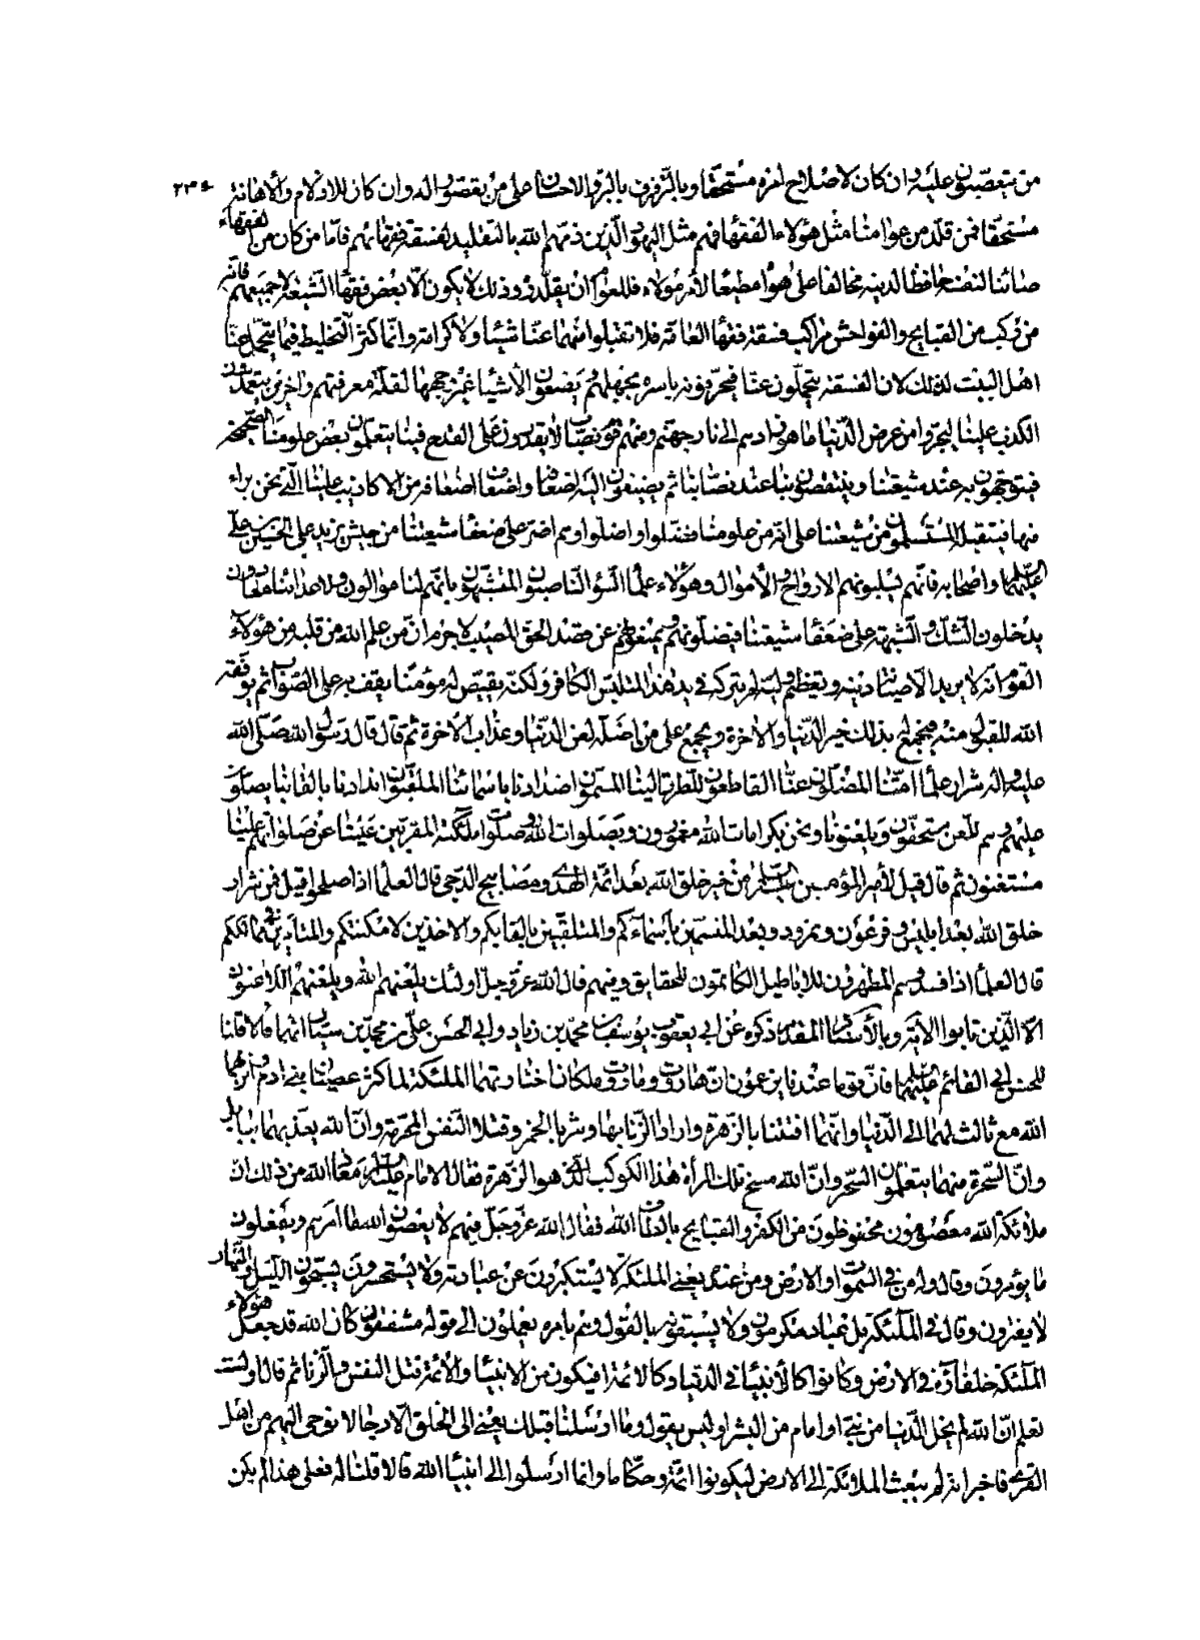 من يتعصبون عليه وان كان لاصلاح امره مستحقا وبالترفرف بالبر والاحسان على من يقصون له وان كان للاذلال والاهانة ٢٣٤
مستحقا فمن قلد من عوامنا مثل هؤلاء الفقهاء فهم مثل اليهود الذين ذمهم الله بالتقليد لفسقة فقهائهم فاما من كان من الفقهاء
صائنا لنفسه حافظا لدينه مخالفا على هواه مطيعا لأمر مولاه فللعوام ان يقلدوه وذلك لا يكون الا بعض فقهاء الشيعة لا جميعهم فانه
من ركب من القبايح والفواحش مراكب فسقة فقهاء العامة فلا تقبلوا منهما عنا شيئا ولا كرامة وانما كثر التخليط فيما يتحمل عنا
اهل البيت لذلك لان الفسقة يتحملون عنا فيحرفونه باسره بجهلهم ويضعون الأشياء غير وجهها لقلة معرفتهم واخرين يتعمدون
الكذب علينا ليجروا من عرض الدنيا ما هو زادهم الى نار جهنم ومنهم قوم نصاب لا يقدرون على القدح فينا يتعلمون بعض علومنا الصحيحة
فيتوجهون به عند شيعتنا وينتقصون بنا عند نصابنا ثم يضيفون اليه اضعافا واضعاف اضعافه من الاكاذيب علينا التي نحن براء
منها فيتقبله المستسلمون من شيعتنا على انه من علومنا فضلوا واضلوا وهم اضر على ضعفاء شيعتنا من جيش يزيد على الحسين بن علي
عليهما السلام واصحابه فانهم يسلبونهم الارواح والأموال وهؤلاء علماء السوء الناصبون المتشبهون بانهم لنا موالون ولاعدائنا معادون
يدخلون الشك والشبهة على ضعفاء شيعتنا فيضلونهم ويمنعونهم عن قصد الحق المصيب لا جرم ان من علم الله من قلبه من هؤلاء
القوم انه لا يريد الا صيانة دينه وتعظيم وليه لم يتركه في يد هذا المتلبس الكافر ولكنه يقيض له مؤمنا يقف به على الصواب ثم يوفقه
الله للقبول منه فيجمع له بذلك خير الدنيا والآخرة ويجمع على من اضله لعن الدنيا وعذاب الآخرة ثم قال قال رسول الله صلى الله
عليه واله شرار علماء امتنا المضلون عنا القاطعون للطرق الينا المسمون اضدادنا باسمائنا الملقبون اندادنا بالقابنا يصلون
عليهم وهم للعن مستحقون ويلعنونا ونحن بكرامات الله مغمورون وبصلوات الله وصلوات ملائكته المقربين علينا عن صلواتهم علينا
مستغنون ثم قال قيل لأمير المؤمنين عليه السلام من خير خلق الله بعد ائمة الهدى ومصابيح الدجى قال العلماء اذا صلحوا قيل فمن شرار
خلق الله بعد ابليس وفرعون ونمرود وبعد المتسمين بأسماءكم والمتلقبين بالقابكم والاخذين لامكنتكم والمتأمرين في ممالككم
قال العلماء اذا فسدوا هم المظهرون للاباطيل الكاتمون للحقايق وفيهم قال الله عز وجل اولئك يلعنهم الله ويلعنهم اللاعنون
الا الذين تابوا الآية وبالأسناد المقدم ذكره عن ابي يعقوب يوسف بن محمد بن زياد وابي الحسن علي بن محمد بن سيار انهما قالا قلنا
للحسن ابي القائم عليهما السلام فان قوما عندنا يزعمون ان هاروت وماروت ملكان اختارتهما الملئكة لما كثر عصيان بني ادم وانزلهما
الله مع ثالث لهما الى الدنيا وانهما افتتنا بالزهرة وارادا الزنا بها وشربا الخمر وقتلا النفس المحرمة وان الله يعذبهما ببابل
وان السحرة منهما يتعلمون السحر وان الله مسخ تلك المرأة هذا الكوكب الذي هو الزهرة فقال الامام عليه السلام معاذ الله من ذلك ان
ملائكة الله معصومون محفوظون من الكفر والقبايح بالطاف الله فقال الله عز وجل فيهم لا يعصون الله ما امرهم ويفعلون
ما يؤمرون وقال وله من في السموات والارض ومن عنده يعني الملئكة لا يستكبرون عن عبادته ولا يستحسرون يسبحون الليل والنهار
لا يفترون وقال في الملئكة بل عباد مكرمون ولا يسبقونه بالقول وهم بامره يعملون الى قوله مشفقون كان الله قد جعل هؤلاء
الملئكة خلفاءه في الارض وكانوا كالأنبياء في الدنيا وكالائمة افيكون من الانبياء والأئمة قتل النفس والزنا ثم قال اولست
تعلم ان الله لم يخل الدنيا من نبي او امام من البشر اوليس يقول وما ارسلنا قبلك يعني الى الخلق الا رجالا نوحي اليهم من اهل
القرى فاخبر انه لم يبعث الملائكة الى الارض ليكونوا ائمة وحكاما وانما ارسلوا الى انبياء الله قالا قلنا له فعلى هذا لم يكن